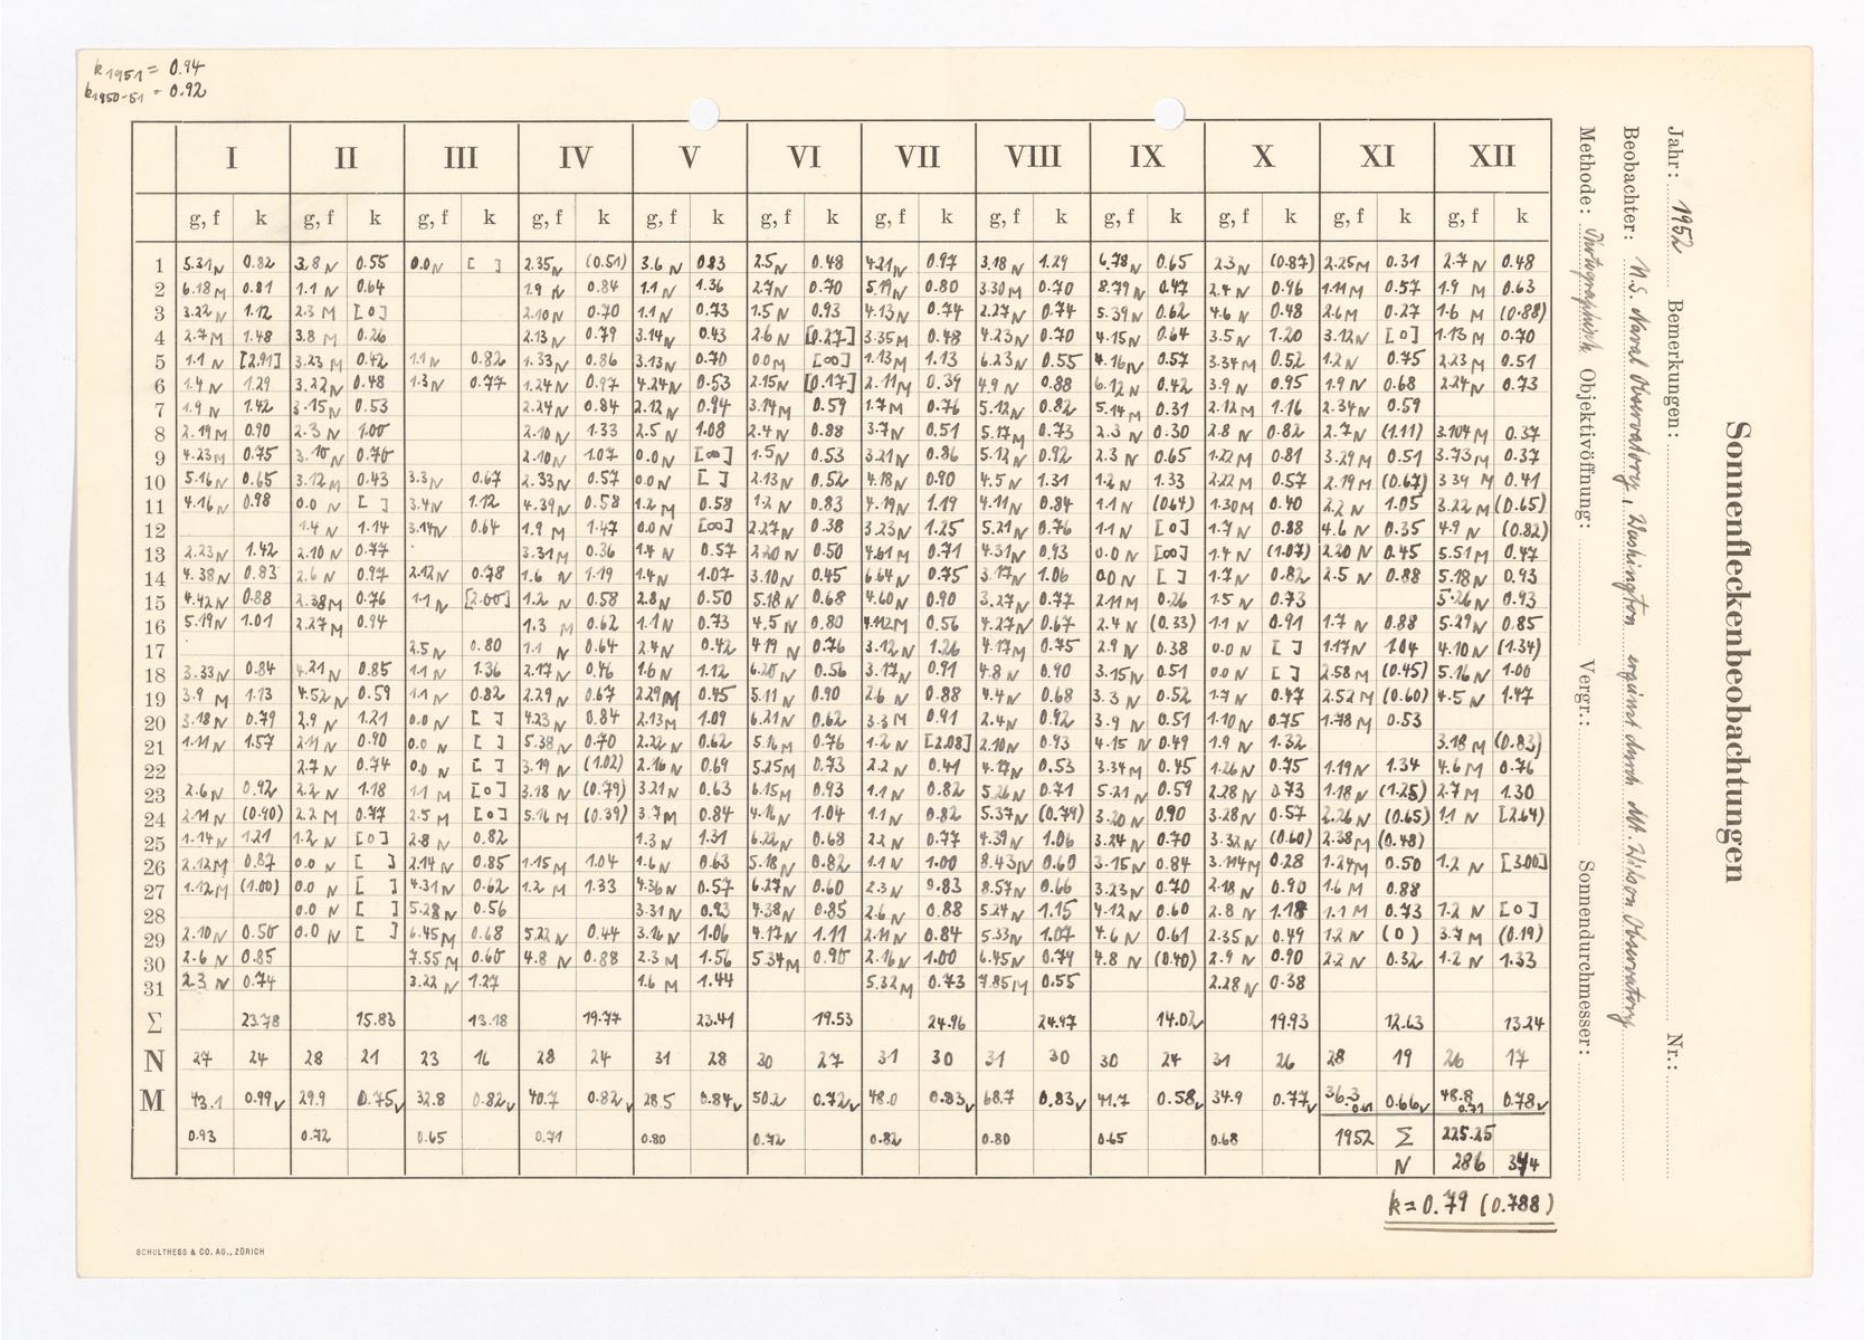 k1951 = 0.94
k1950-51 = 0.92
Sonnenfleckenbeobachtungen
Jahr: 1952 Bemerkungen: Nr.:
Beobachter: U.S. Naval Observatory, Washington ergänzt durch Mt. Wilson Observatory
Methode: Photographisch Objektivöffnung: Vergr.: Sonnendurchmesser:
I II III IV V VI VII VIII IX X XI XII
g, f k g, f k g, f k g, f k g, f k g, f k g, f k g, f k g, f k g, f k g, f k g, f k
1 5.31N 0.82 3.8N 0.55 0.0N [ ] 2.35N (0.51) 3.6N 0.83 2.5N 0.48 4.21N 0.97 3.18N 1.29 6.78N 0.65 2.3N (0.87) 2.25M 0.31 2.7N 0.48
2 6.18M 0.81 1.1N 0.64 1.9N 0.84 1.1N 1.36 2.7N 0.70 5.19N 0.80 3.30M 0.70 8.79N 0.47 2.4N 0.96 1.11M 0.57 1.9M 0.63
3 3.22N 1.12 2.3M [0] 2.10N 0.70 1.1N 0.73 1.5N 0.93 4.13N 0.74 2.27N 0.74 5.39N 0.62 4.6N 0.48 2.6M 0.27 1.6M (0.88)
4 2.7M 1.48 3.8M 0.26 2.13N 0.79 3.14N 0.43 2.6N [0.27] 3.35M 0.48 4.23N 0.70 4.15N 0.64 3.5N 1.20 3.12N [0] 1.13M 0.70
5 1.1N [2.91] 3.23M 0.42 1.1N 0.82 1.33N 0.86 3.13N 0.70 0.0M [∞] 1.13M 1.13 6.23N 0.55 4.16N 0.57 3.34M 0.52 1.2N 0.75 2.23M 0.51
6 1.4N 1.29 3.22N 0.48 1.3N 0.77 1.24N 0.97 4.24N 0.53 2.15N [0.17] 2.11M 0.39 4.9N 0.88 6.12N 0.42 3.9N 0.95 1.9N 0.68 2.24N 0.73
7 1.9N 1.42 3.15N 0.53 2.24N 0.84 2.12N 0.94 3.14M 0.59 1.7M 0.76 5.12N 0.82 5.14M 0.31 2.12M 1.16 2.34N 0.59
8 2.19M 0.90 2.3N 1.00 2.10N 1.33 2.5N 1.08 2.4N 0.88 3.7N 0.51 5.17M 0.73 2.3N 0.30 2.8N 0.82 2.7N (1.11) 3.104M 0.37
9 4.23M 0.75 3.10N 0.70 2.10N 1.07 0.0N [∞] 1.5N 0.53 3.21N 0.86 5.12N 0.92 2.3N 0.65 1.22M 0.81 3.29M 0.51 3.73M 0.37
10 5.16N 0.65 3.12M 0.43 3.3N 0.67 2.33N 0.57 0.0N [ ] 2.13N 0.52 4.18N 0.90 4.5N 1.31 1.2N 1.33 2.22M 0.57 2.19M (0.67) 3.34M 0.41
11 4.16N 0.98 0.0N [ ] 3.4N 1.12 4.39N 0.58 1.2M 0.58 1.2N 0.83 4.19N 1.19 4.11N 0.84 1.1N (0.64) 1.30M 0.40 2.2N 1.05 3.22M (0.65)
12 1.4N 1.14 3.14N 0.64 1.9M 1.47 0.0N [∞] 2.27N 0.38 3.23N 1.25 5.21N 0.76 1.1N [0] 1.7N 0.88 4.6N 0.35 4.9N (0.82)
13 2.23N 1.42 2.10N 0.77 3.31M 0.36 1.4N 0.57 2.20N 0.50 4.61M 0.71 4.31N 0.93 0.0N [∞] 1.4N (1.07) 2.20N 0.45 5.51M 0.47
14 4.38N 0.83 2.6N 0.97 2.12N 0.78 1.6N 1.19 1.4N 1.07 3.10N 0.45 6.64N 0.75 3.17N 1.06 0.0N [ ] 1.7N 0.82 2.5N 0.88 5.18N 0.93
15 4.42N 0.88 2.38M 0.76 1.1N [2.00] 1.2N 0.58 2.8N 0.50 5.18N 0.68 4.60N 0.90 3.27N 0.77 2.11M 0.26 1.5N 0.73 5.26N 0.93
16 5.19N 1.01 2.27M 0.94 1.3M 0.62 1.1N 0.73 4.5N 0.80 4.112M 0.56 4.27N 0.67 2.4N (0.33) 1.1N 0.91 1.7N 0.88 5.29N 0.85
17 2.5N 0.80 1.1N 0.64 2.4N 0.42 4.19N 0.76 3.12N 1.26 4.17M 0.75 2.9N 0.38 0.0N [ ] 1.17N 1.04 4.10N (1.34)
18 3.33N 0.84 4.21N 0.85 1.1N 1.36 2.17N 0.46 1.6N 1.12 6.20N 0.56 3.17N 0.91 4.8N 0.90 3.15N 0.51 0.0N [ ] 2.58M (0.45) 5.16N 1.00
19 3.9M 1.13 4.52N 0.59 1.1N 0.82 2.29N 0.67 2.29M 0.45 5.11N 0.90 2.6N 0.88 4.4N 0.68 3.3N 0.52 1.7N 0.47 2.52M (0.60) 4.5N 1.47
20 3.18N 0.79 2.9N 1.21 0.0N [ ] 4.23N 0.84 2.13M 1.09 6.21N 0.62 3.3M 0.91 2.4N 0.92 3.9N 0.51 1.10N 0.75 1.78M 0.53
21 1.11N 1.57 2.11N 0.90 0.0N [ ] 5.38N 0.70 2.22N 0.62 5.16M 0.76 1.2N [2.08] 2.10N 0.93 4.15N 0.49 1.9N 1.32 3.18M (0.83)
22 2.7N 0.74 0.0N [ ] 3.19N (1.02) 2.16N 0.69 5.25M 0.73 2.2N 0.41 4.17N 0.53 3.34M 0.45 1.26N 0.75 1.19N 1.34 4.6M 0.76
23 2.6N 0.92 2.2N 1.18 1.1M [0] 3.18N (0.79) 3.21N 0.63 6.15M 0.93 1.1N 0.82 5.26N 0.71 5.21N 0.59 2.28N 0.73 1.18N (1.25) 2.7M 1.30
24 2.11N (0.90) 2.2M 0.77 2.5M [0] 5.16M (0.39) 3.7M 0.84 4.16N 1.04 1.1N 0.82 5.37N (0.79) 3.20N 0.90 3.28N 0.57 2.26N (0.65) 1.1N [2.64]
25 1.14N 1.21 1.2N [0] 2.8N 0.82 1.3N 1.31 6.22N 0.68 2.2N 0.77 4.39N 1.06 3.24N 0.70 3.32N (0.60) 2.38M (0.48)
26 2.12M 0.87 0.0N [ ] 2.14N 0.85 1.15M 1.04 1.6N 0.63 5.18N 0.82 1.1N 1.00 8.43N 0.60 3.15N 0.84 3.114M 0.28 1.24M 0.50 1.2N [3.00]
27 1.12M (1.00) 0.0N [ ] 4.31N 0.62 1.2M 1.33 4.36N 0.57 6.27N 0.60 2.3N 0.83 8.57N 0.66 3.23N 0.70 2.18N 0.90 1.6M 0.88
28 0.0N [ ] 5.28N 0.56 3.31N 0.93 4.38N 0.85 2.6N 0.88 5.24N 1.15 4.12N 0.60 2.8N 1.18 1.1M 0.73 1.2N [0]
29 2.10N 0.50 0.0N [ ] 6.45M 0.68 5.22N 0.44 3.16N 1.06 4.17N 1.11 2.11N 0.84 5.33N 1.07 4.6N 0.61 2.35N 0.49 1.2N (0) 3.7M (0.19)
30 2.6N 0.85 7.55M 0.60 4.8N 0.88 2.3M 1.56 5.34M 0.90 2.16N 1.00 6.45N 0.79 4.8N (0.40) 2.9N 0.90 2.2N 0.32 1.2N 1.33
31 2.3N 0.74 3.22N 1.27 1.6M 1.44 5.32M 0.73 7.85M 0.55 2.28N 0.38
Σ 23.78 15.83 13.18 19.77 23.41 19.53 24.96 24.97 14.02 19.93 12.63 13.24
N 27 24 28 21 23 16 28 24 31 28 30 27 31 30 31 30 30 24 31 26 28 19 26 17
M 43.1 0.99 29.9 0.75 32.8 0.82 40.7 0.82 28.5 0.84 50.2 0.72 48.0 0.83 68.7 0.83 41.7 0.58 34.9 0.77 36.3 0.66 48.8 0.78
0.93 0.72 0.65 0.71 0.80 0.72 0.82 0.80 0.65 0.68 0.61 0.71
1952 Σ 225.25
N 286 344
k = 0.79 (0.788)
SCHULTHESS & CO. AG., ZÜRICH